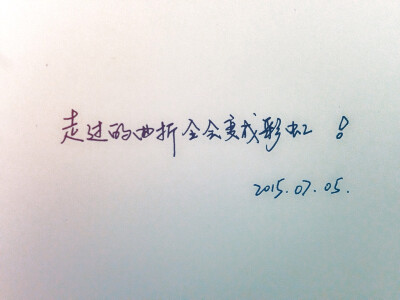 走过的曲折全会变成彩虹！
2015.07.05.